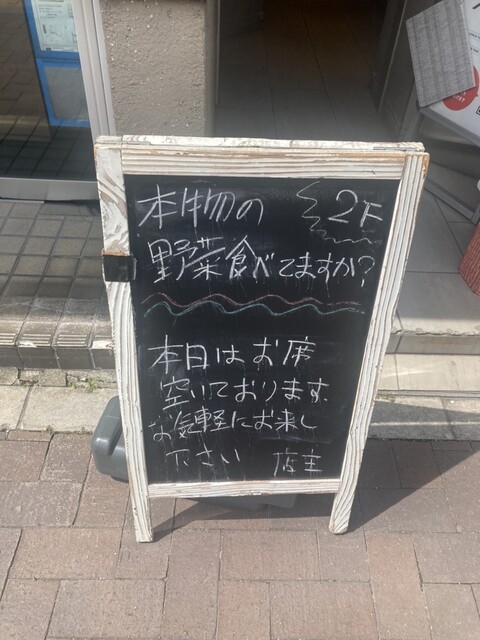 本物の 2F
野菜食べてますか?
本日はお席
空いております.
お気軽にお来し
下さい 店主